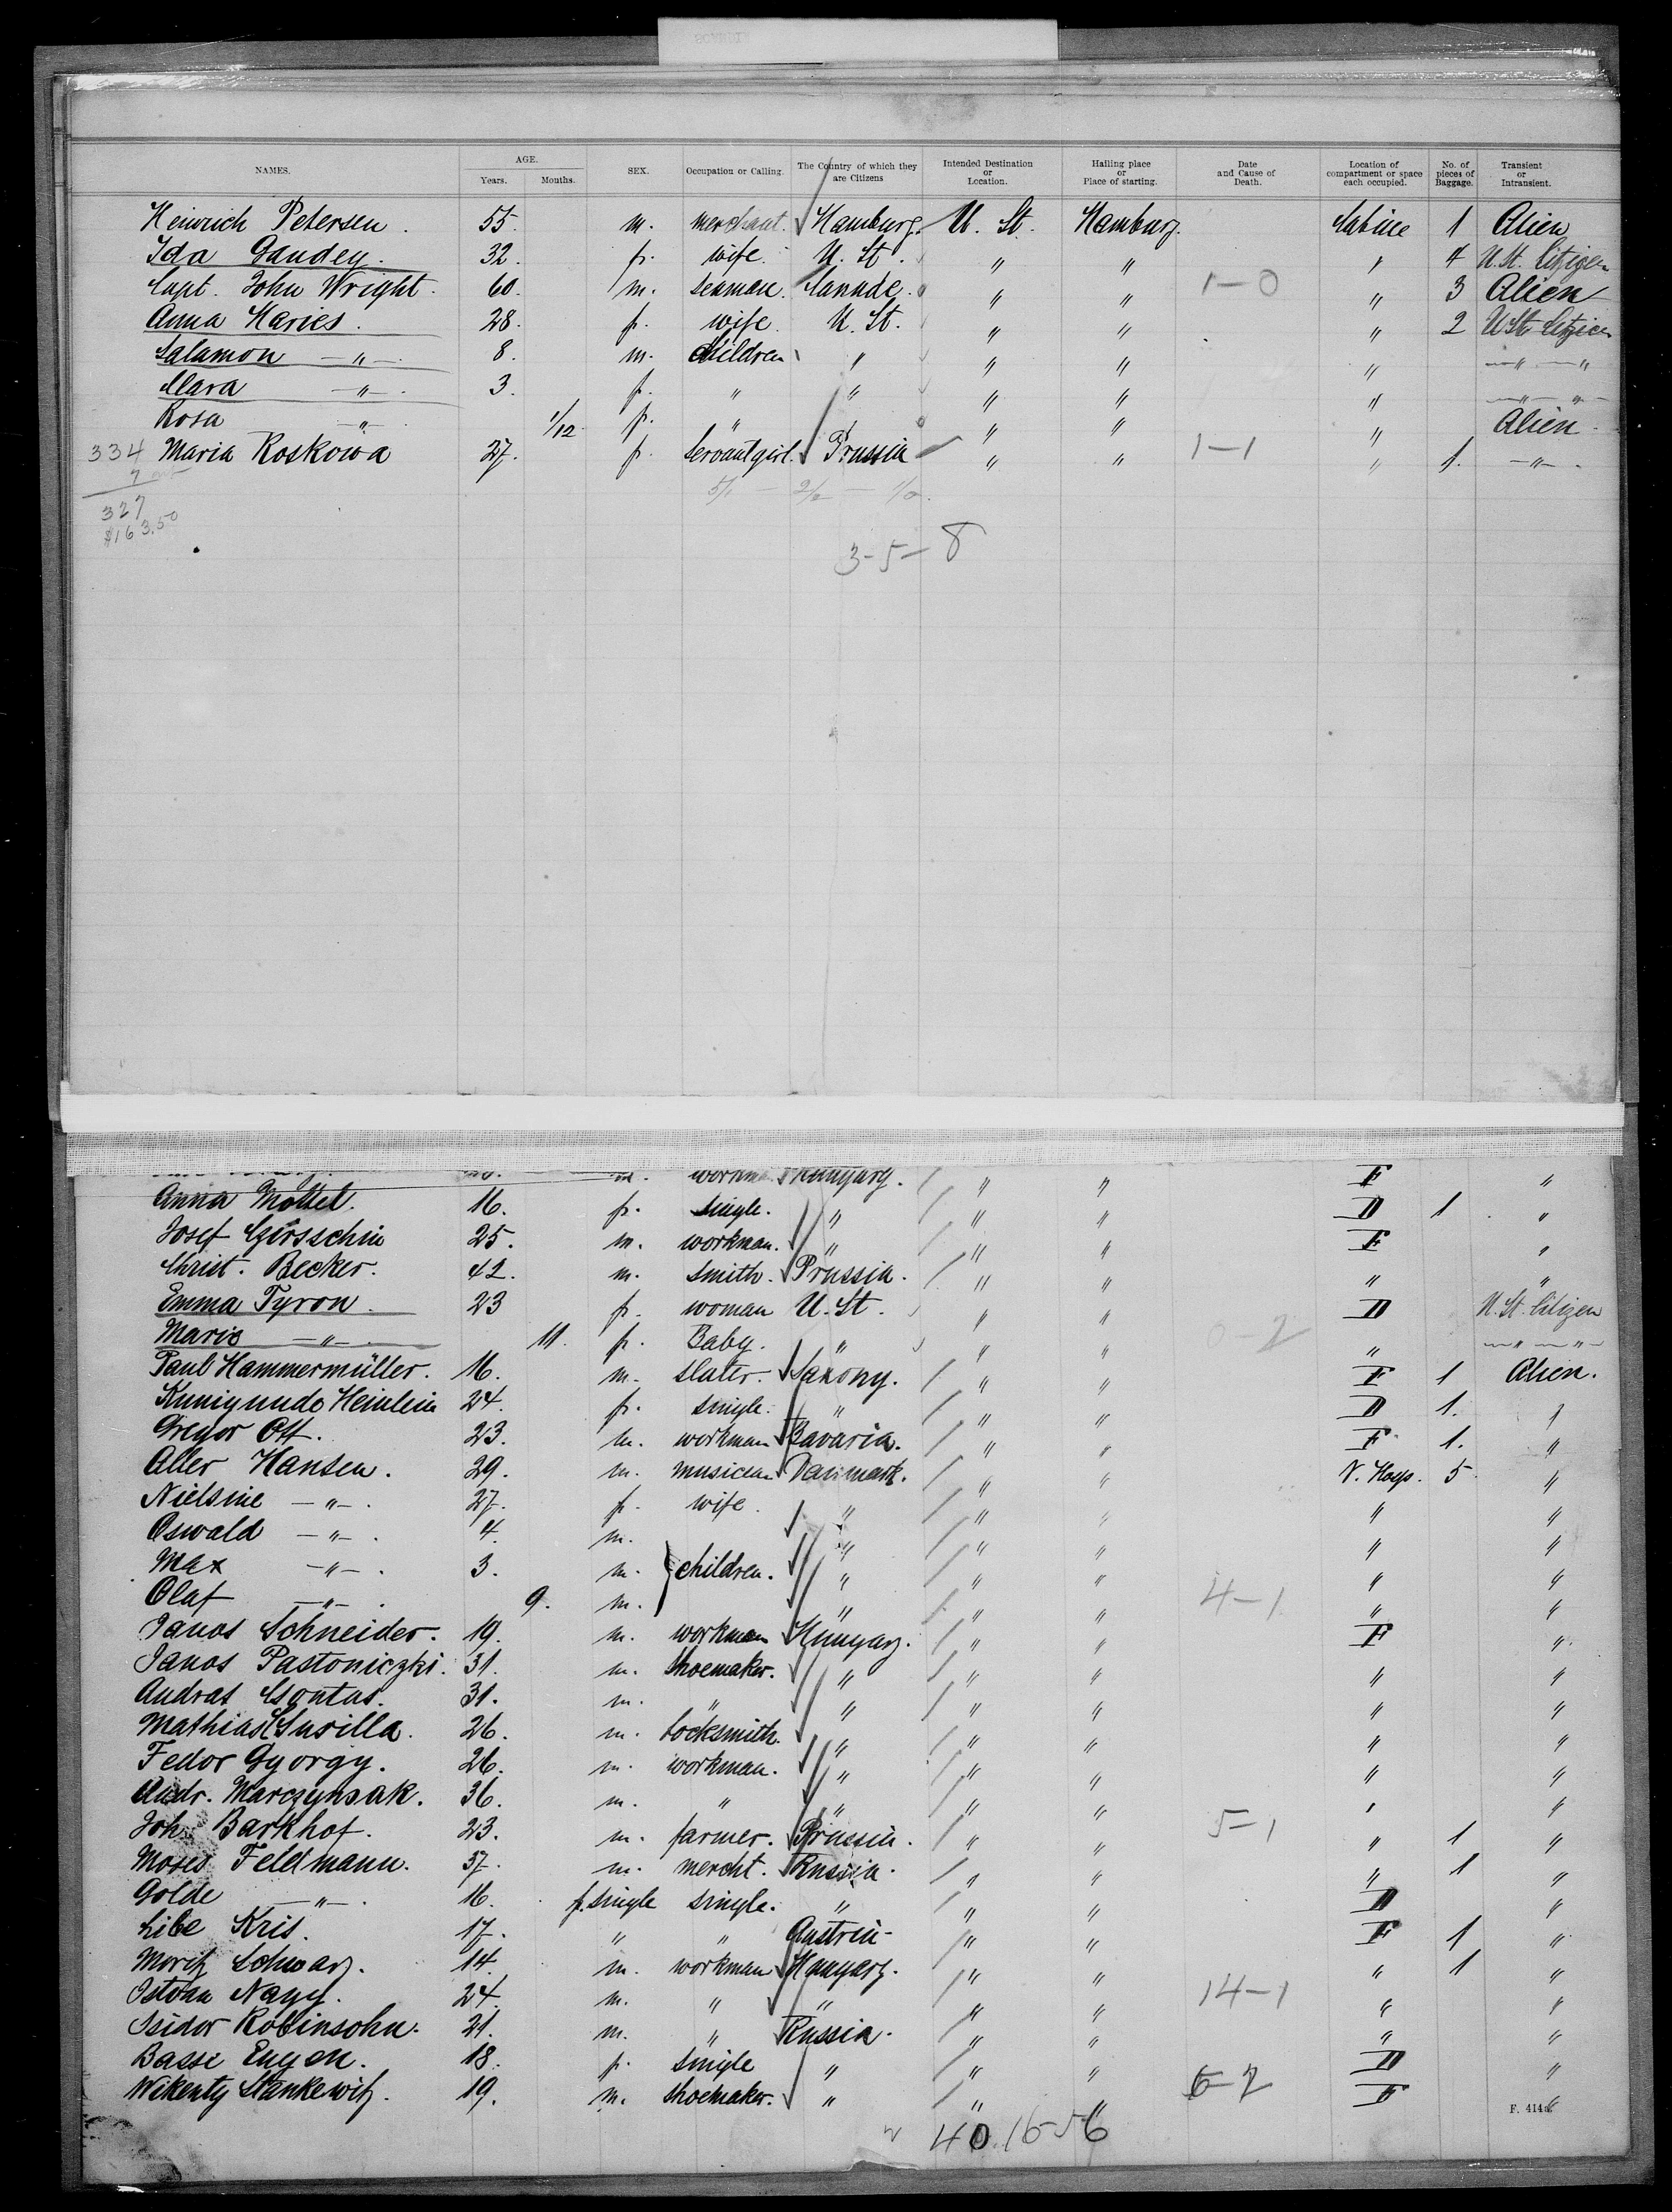 NAMES. AGE. Years. Months. SEX. Occupation or Calling. The Country of which they are Citizens Intended Destination or Location. Hailing place or Place of starting. Date and Cause of Death. Location of compartment or space each occupied. No. of pieces of Baggage. Transient or Intransient.
Heinrich Petersen. 55. m. merchant. Hamburg. U. St. Hamburg. 1 Alien
Ida Gaudey. 32. f. wife. U. St. " " " 4 U. St. Citizen
Capt. John Wright. 60. m. seaman. Canade. " " 1-0 " 3 Alien
Anna Haries. 28. f. wife. U. St. " " " 2 U St. Citizen
Salamon -"- 8. m. children " " " " -"- -"-
Clara -"- 3. f. " " " " " -"- -"-
Rosa -"- 1/12 f. " " " " " Alien
334 Maria Koskowa 27. f. Servantgirl. Prussia " " 1-1 " 1. -"-
7
327
$163.50
3-5-8
workm Hungary. " " F "
Anna Mottel. 16. f. single. " " " D 1 "
Josef 25. m. workman. " " " F "
Christ. Becker. 42. m. smith. Prussia. " " " "
Emma Tyron. 23 f. woman U. St. " " D U. St. Citizen
Marie -"- 11. f. Baby. " " " 0-2 " -"- -"-
Paul Hammermüller. 16. m. slater. Saxony. " " F 1 Alien.
Kunigunde Heinlein 24. f. single. " " " D 1. "
Gregor Ott. 23. m. workman Bavaria. " " F 1. "
Aller Hansen. 29. m. musician Danmark. " " N. Hosp. 5 "
Nielsine -"- 27. f. wife. " " " " "
Oswald -"- 4. m. " " " " "
Max -"- 3. m. children. " " " " "
Olaf -"- 9. m. " " " 4-1 " "
Janos Schneider. 19. m. workman Hungary. " " F "
Janos Pastoniczki. 31. m. Shoemaker. " " " " "
Andras Csontas. 31. m. " " " " " "
Mathias Susilla. 26. m. locksmith. " " " " "
Fedor Gyorgy. 26. m. workman. " " " " "
Andr. Marczynsak. 36. m. " " " " " "
Joh. Barkhof. 23. m. farmer. Prussia. " " 5-1 " 1 "
Moses Feldmann. 37. m. mercht. Russia. " " " 1 "
Golde -"- 16. f. single single. " " " D "
Libe Kris. 17. " " Austria " " F 1 "
Moritz Schwarz. 14 m. workman Hungary. " " " 1 "
Istvan Nagy. 24. m. " " " " 14-1 " "
Isidor Robinsohn. 21. m. " Russia. " " " "
Basse Eugen. 18. f. single " " " D "
Wikenty Stankewitz. 19. m. Shoemaker. " " " 6-2 F "
F. 414a.
40.16-56